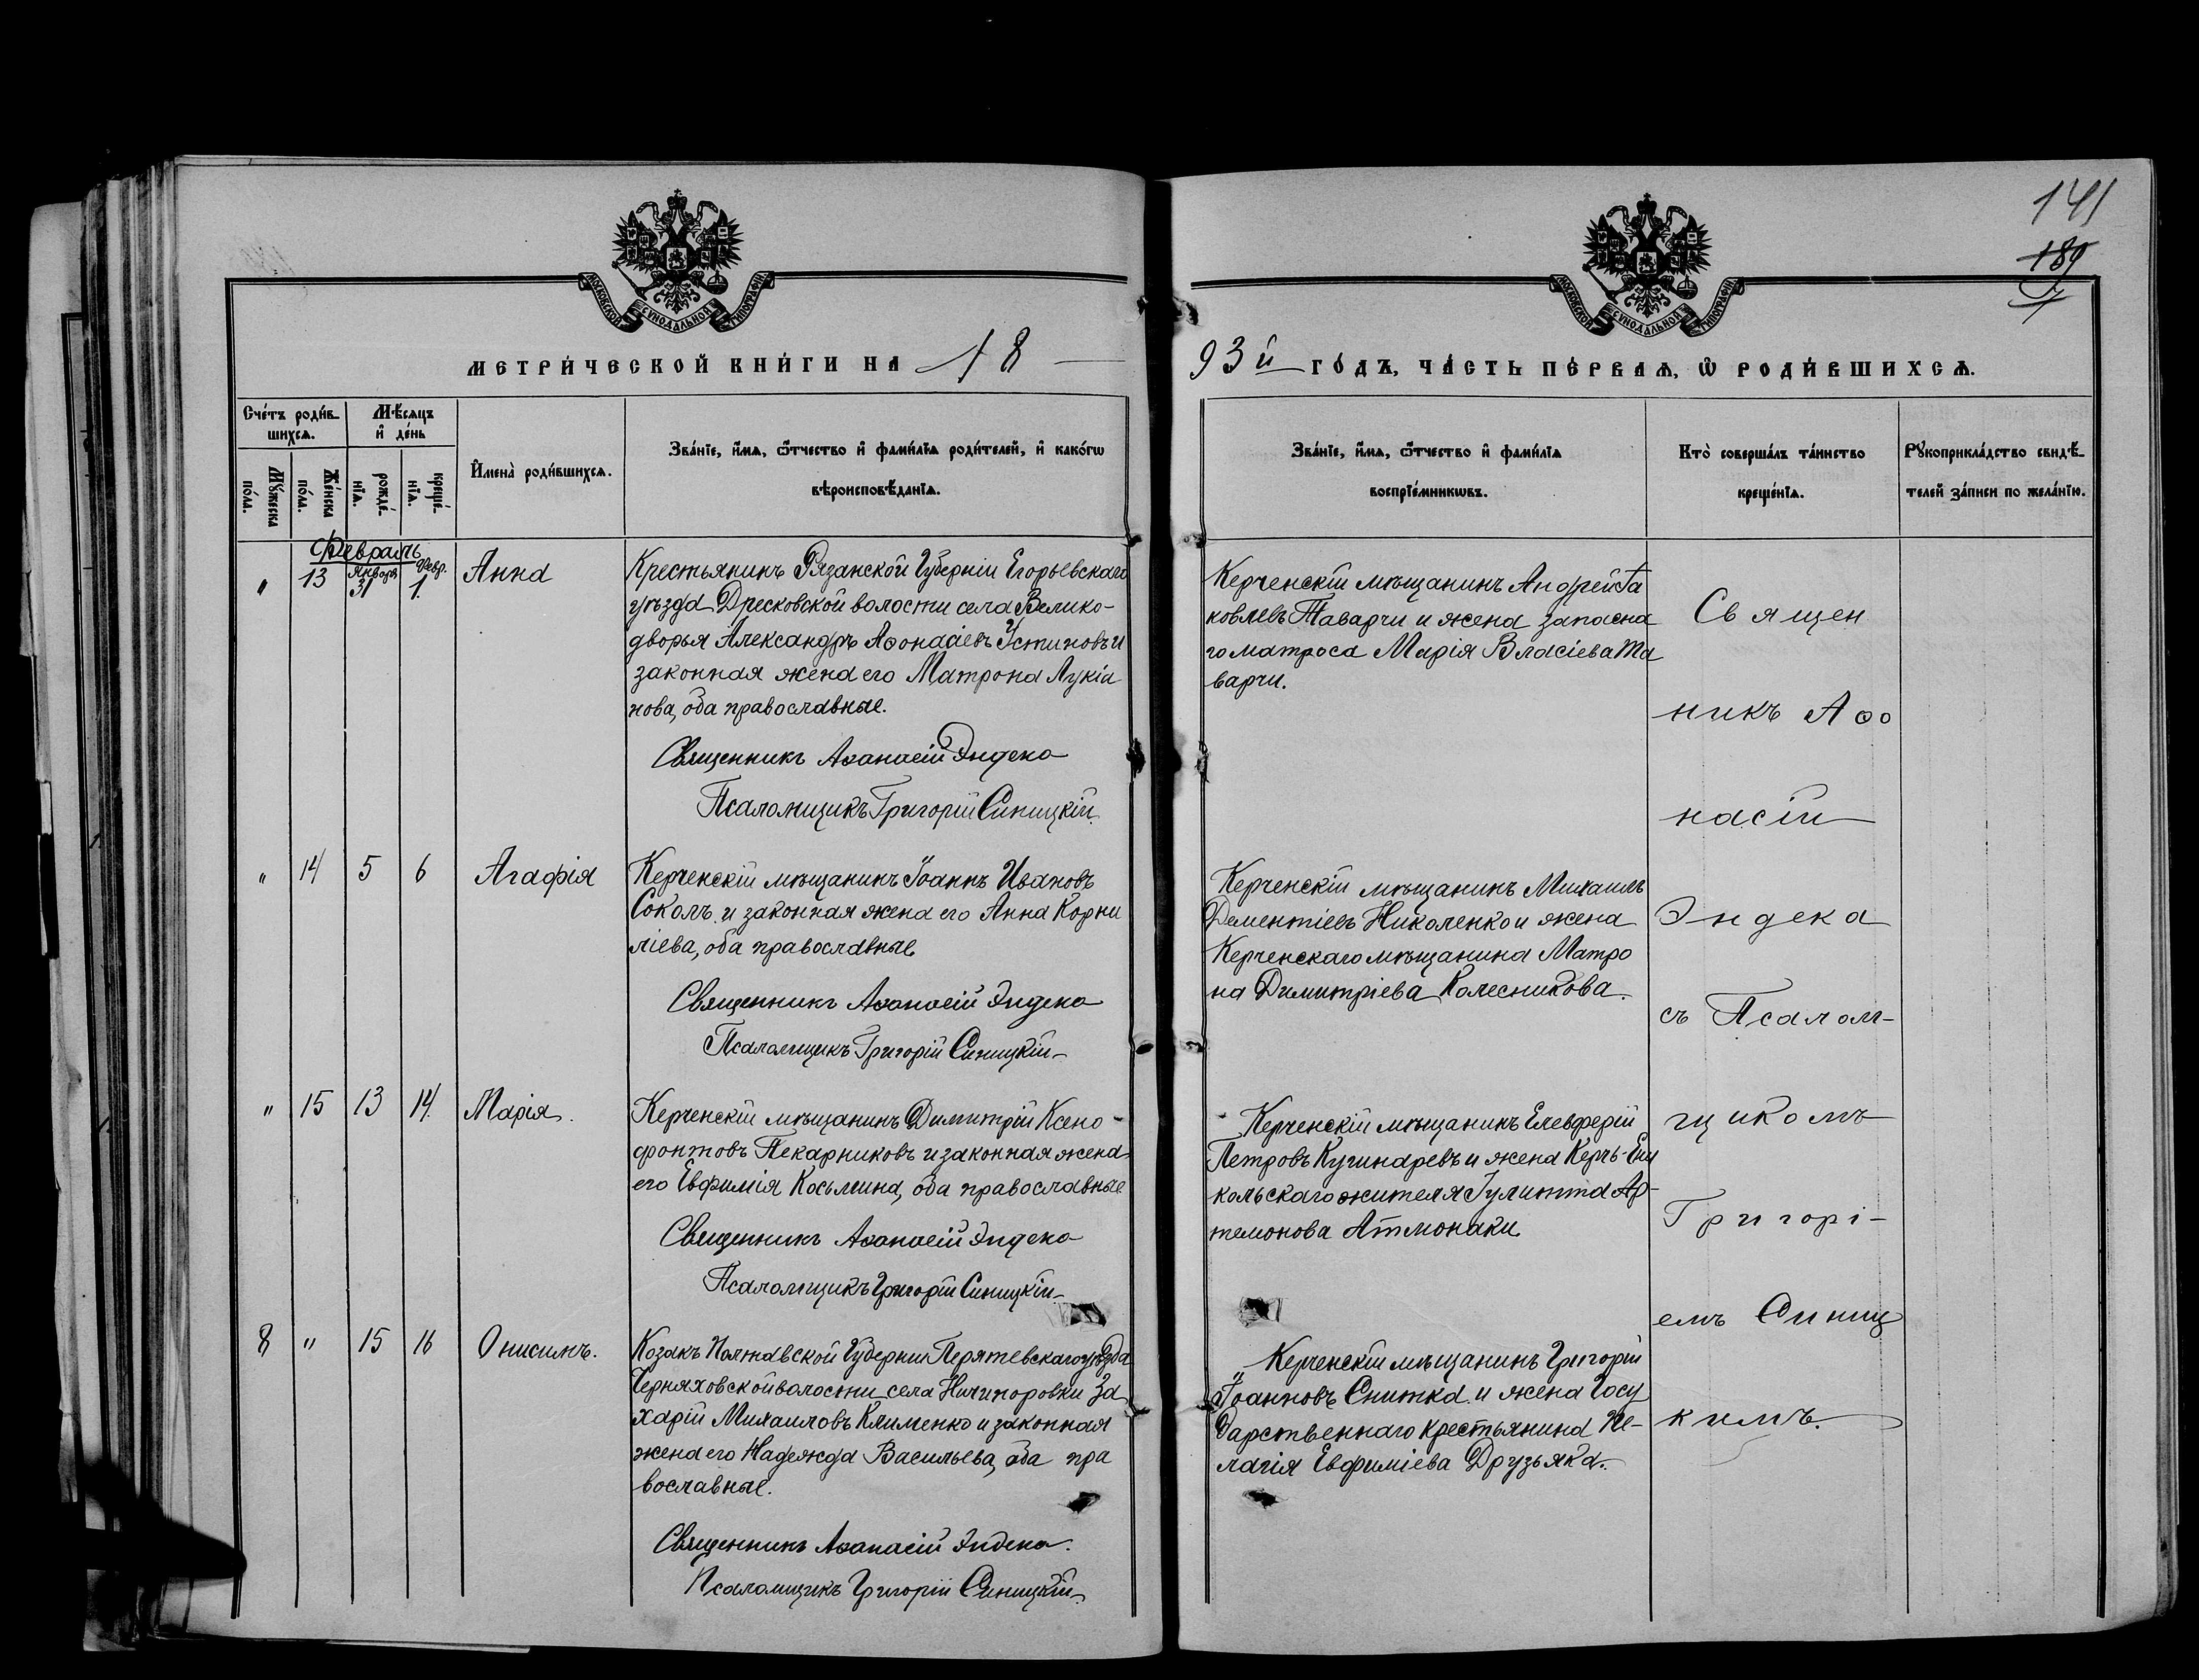 141
189
МОСКОВСКОЙ СѴНОДАЛЬНОЙ ТИПОГРАФІИ
МОСКОВСКОЙ СѴНОДАЛЬНОЙ ТИПОГРАФІИ
МЕТРИ́ЧЕСКОЙ КНИ́ГИ НА 18
93й ГО́ДЪ, ЧА́СТЬ ПЕ́РВАѦ, Ѡ РОДИ́ВШИХСѦ.
Сче́тъ роди́в-
шихсѧ.
Мѣ́сѧцъ
и де́нь
Мꙋ́жеска
по́ла.
Же́нска
по́ла.
рожде́-
нїѧ.
креще́-
нїѧ.
Имена̀ роди́вшихсѧ.
Зва́нїе, и́мѧ, ѻ́тчество и фами́лїѧ роди́телей, и како́гѡ
вѣроисповѣ́данїѧ.
Зва́нїе, и́мѧ, ѻ́тчество и фами́лїѧ
воспрїе́мникѡвъ.
Кто̀ соверша́лъ та́инство
креще́нїѧ.
Рꙋкоприкла́дство свидѣ́-
телей за́писи по жела́нїю.
Февраль
" 13 Января 31 Февр. 1. Анна
Крестьянинъ Рязанской Губерніи Егорьевскаго
уѣзда Дресковской волости села Велико-
дворья Александръ Аѳонасіевъ Устиновъ и
законная жена его Матрона Лукіа
нова, оба православные.
Священникъ Аѳанасій Эндека
Псаломщикъ Григорій Синицкій.
Керченскій мѣщанинъ Андрей Іа
ковлевъ Таварчи и жена запасна
го матроса Марія Власіева Та
варчи.
" 14 5 6 Агафія
Керченскій мѣщанинъ Іоаннъ Ивановъ
Соколъ и законная жена его Анна Корни
ліева, оба православные
Священникъ Аѳанасій Эндека
Псаломщикъ Григорій Синицкій
Керченскій мѣщанинъ Михаилъ
Дементіевъ Николенко и жена
Керченскаго мѣщанина Матро
на Димитріева Колесникова.
" 15 13 14 Марія.
Керченскій мѣщанинъ Димитрій Ксено-
фонтовъ Пекарниковъ и законная жена
его Евфимія Косьмина, оба православные
Священникъ Аѳанасій Эндека
Псаломщикъ Григорій Синицкій
Керченскій мѣщанинъ Елевферій
Петровъ Кучинаревъ и жена Керчь-Ени
кольскаго жителя Іулитта Ар-
темонова Атмонаки.
8 " 15 16 Онисимъ.
Козакъ Полтавской Губерніи Перятевскаго уѣзда
Черняховской волости села Ничипоровки За
харій Михаиловъ Клименко и законная
жена его Надежда Васильева, оба пра
вославные.
Священникъ Аѳанасій Эндека.
Псаломщикъ Григорій Синицкій.
Керченскій мѣщанинъ Григорій
Іоанновъ Снитка и жена Госу
дарственнаго крестьянина Пе-
лагія Евфиміева Друзьяка.
Священ
никъ Аѳо
насій
Эндека
съ Псалом-
щикомъ
Григорі-
емъ Синиц
кимъ.